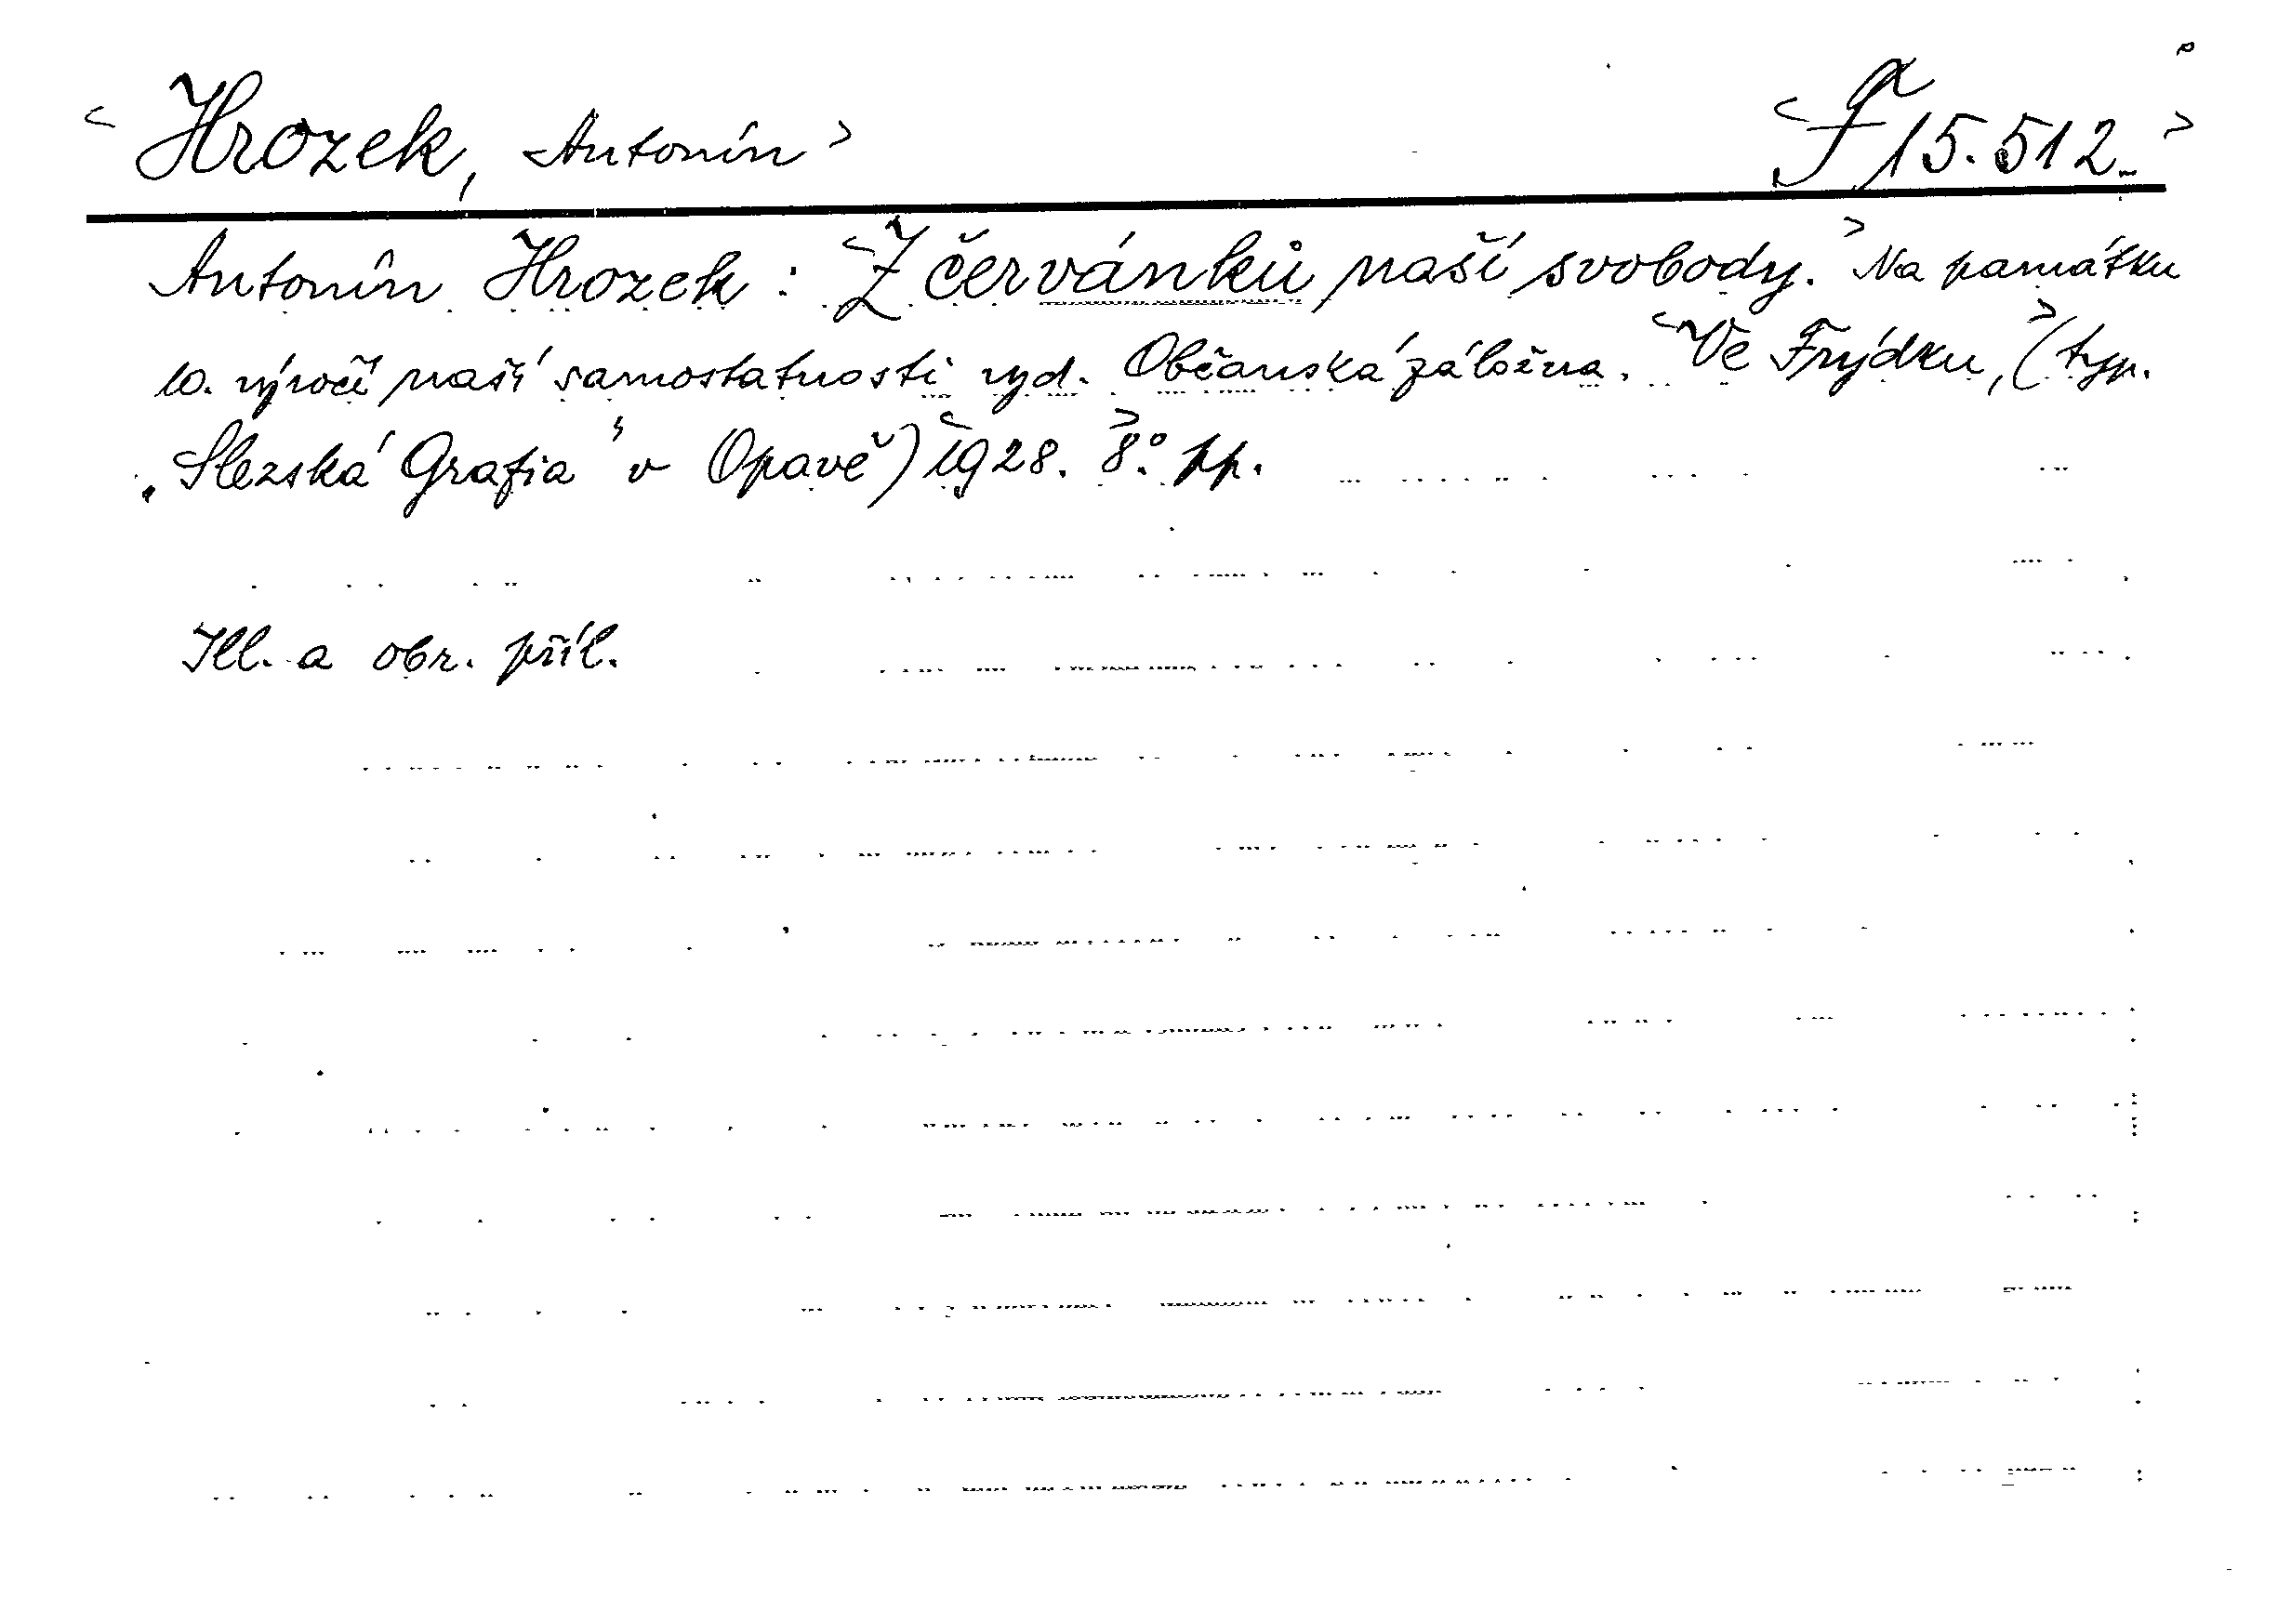 <Hrozek, Antonín> <F 15.512.>
Antonín Hrozek: <Z červánků naší svobody.> Na památku
10. výročí naší samostatnosti vyd. Občanská záložna. <Ve Frýdku,> (typ.
„Slezská Grafia" v Opavě) <1928. 8°.> pp.
Ill. a obr. příl.